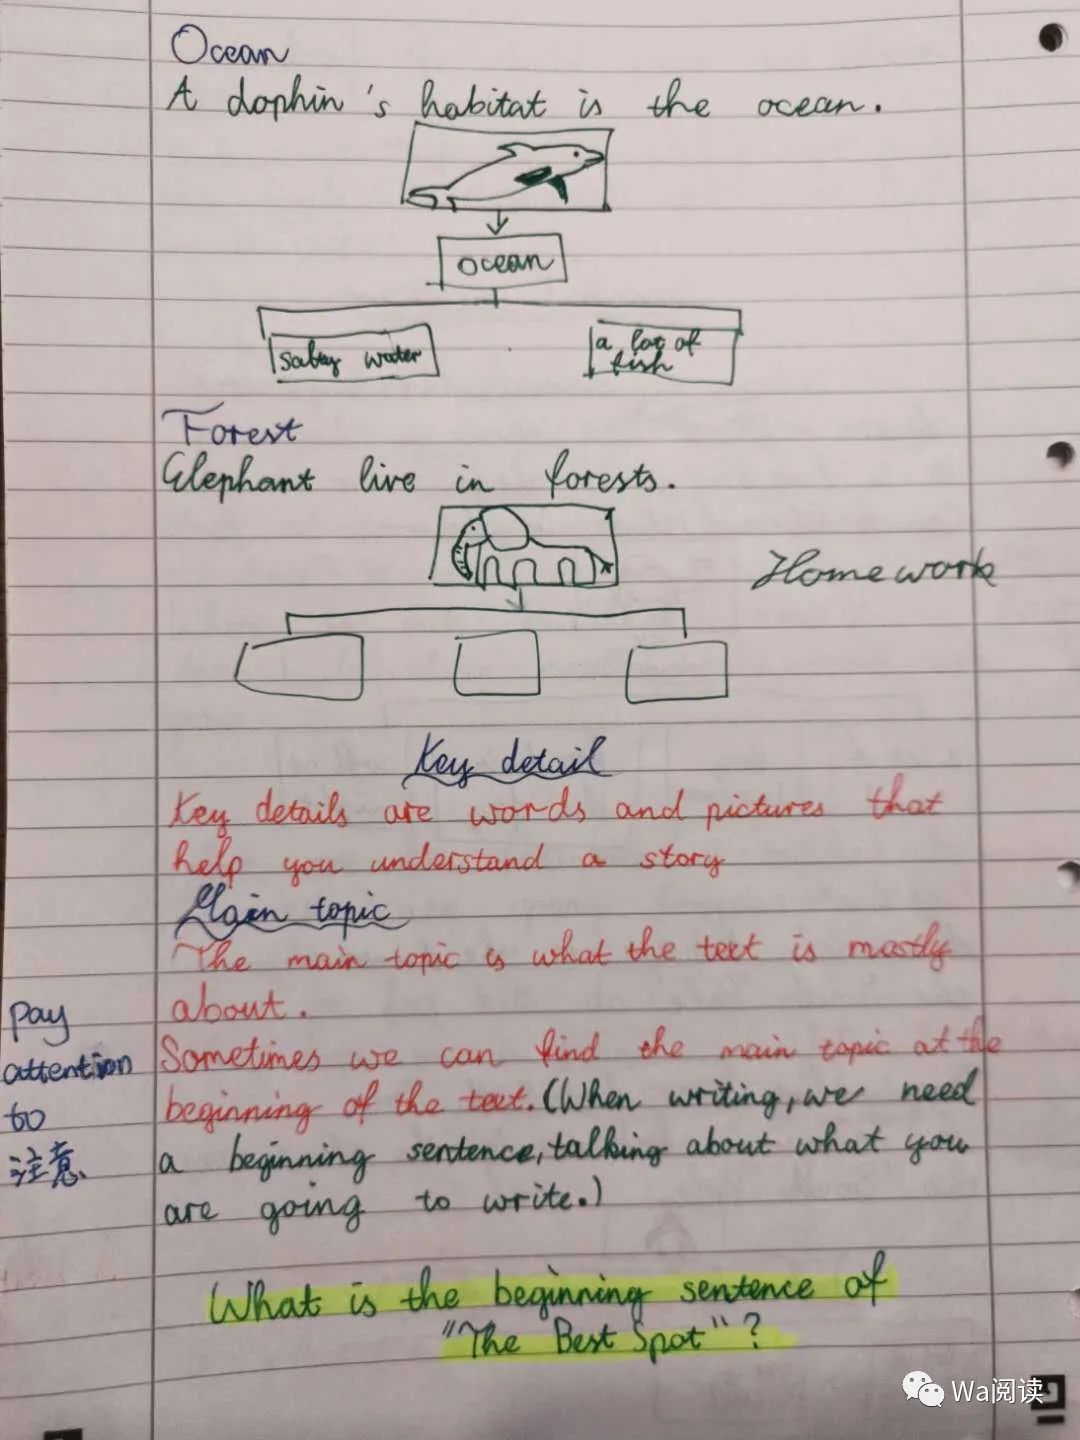 Ocean
A dophin's habitat is the ocean.
ocean
salty water
a lot of
fish
Forest
Elephant live in forests.
Homework
Key detail
Key details are words and pictures that
help you understand a story
Main topic
The main topic is what the text is mostly
about.
pay
attention
to
注意
Sometimes we can find the main topic at the
beginning of the text. (When writing, we need
a beginning sentence, talking about what you
are going to write.)
What is the beginning sentence of
"The Best Spot"?
Wa阅读